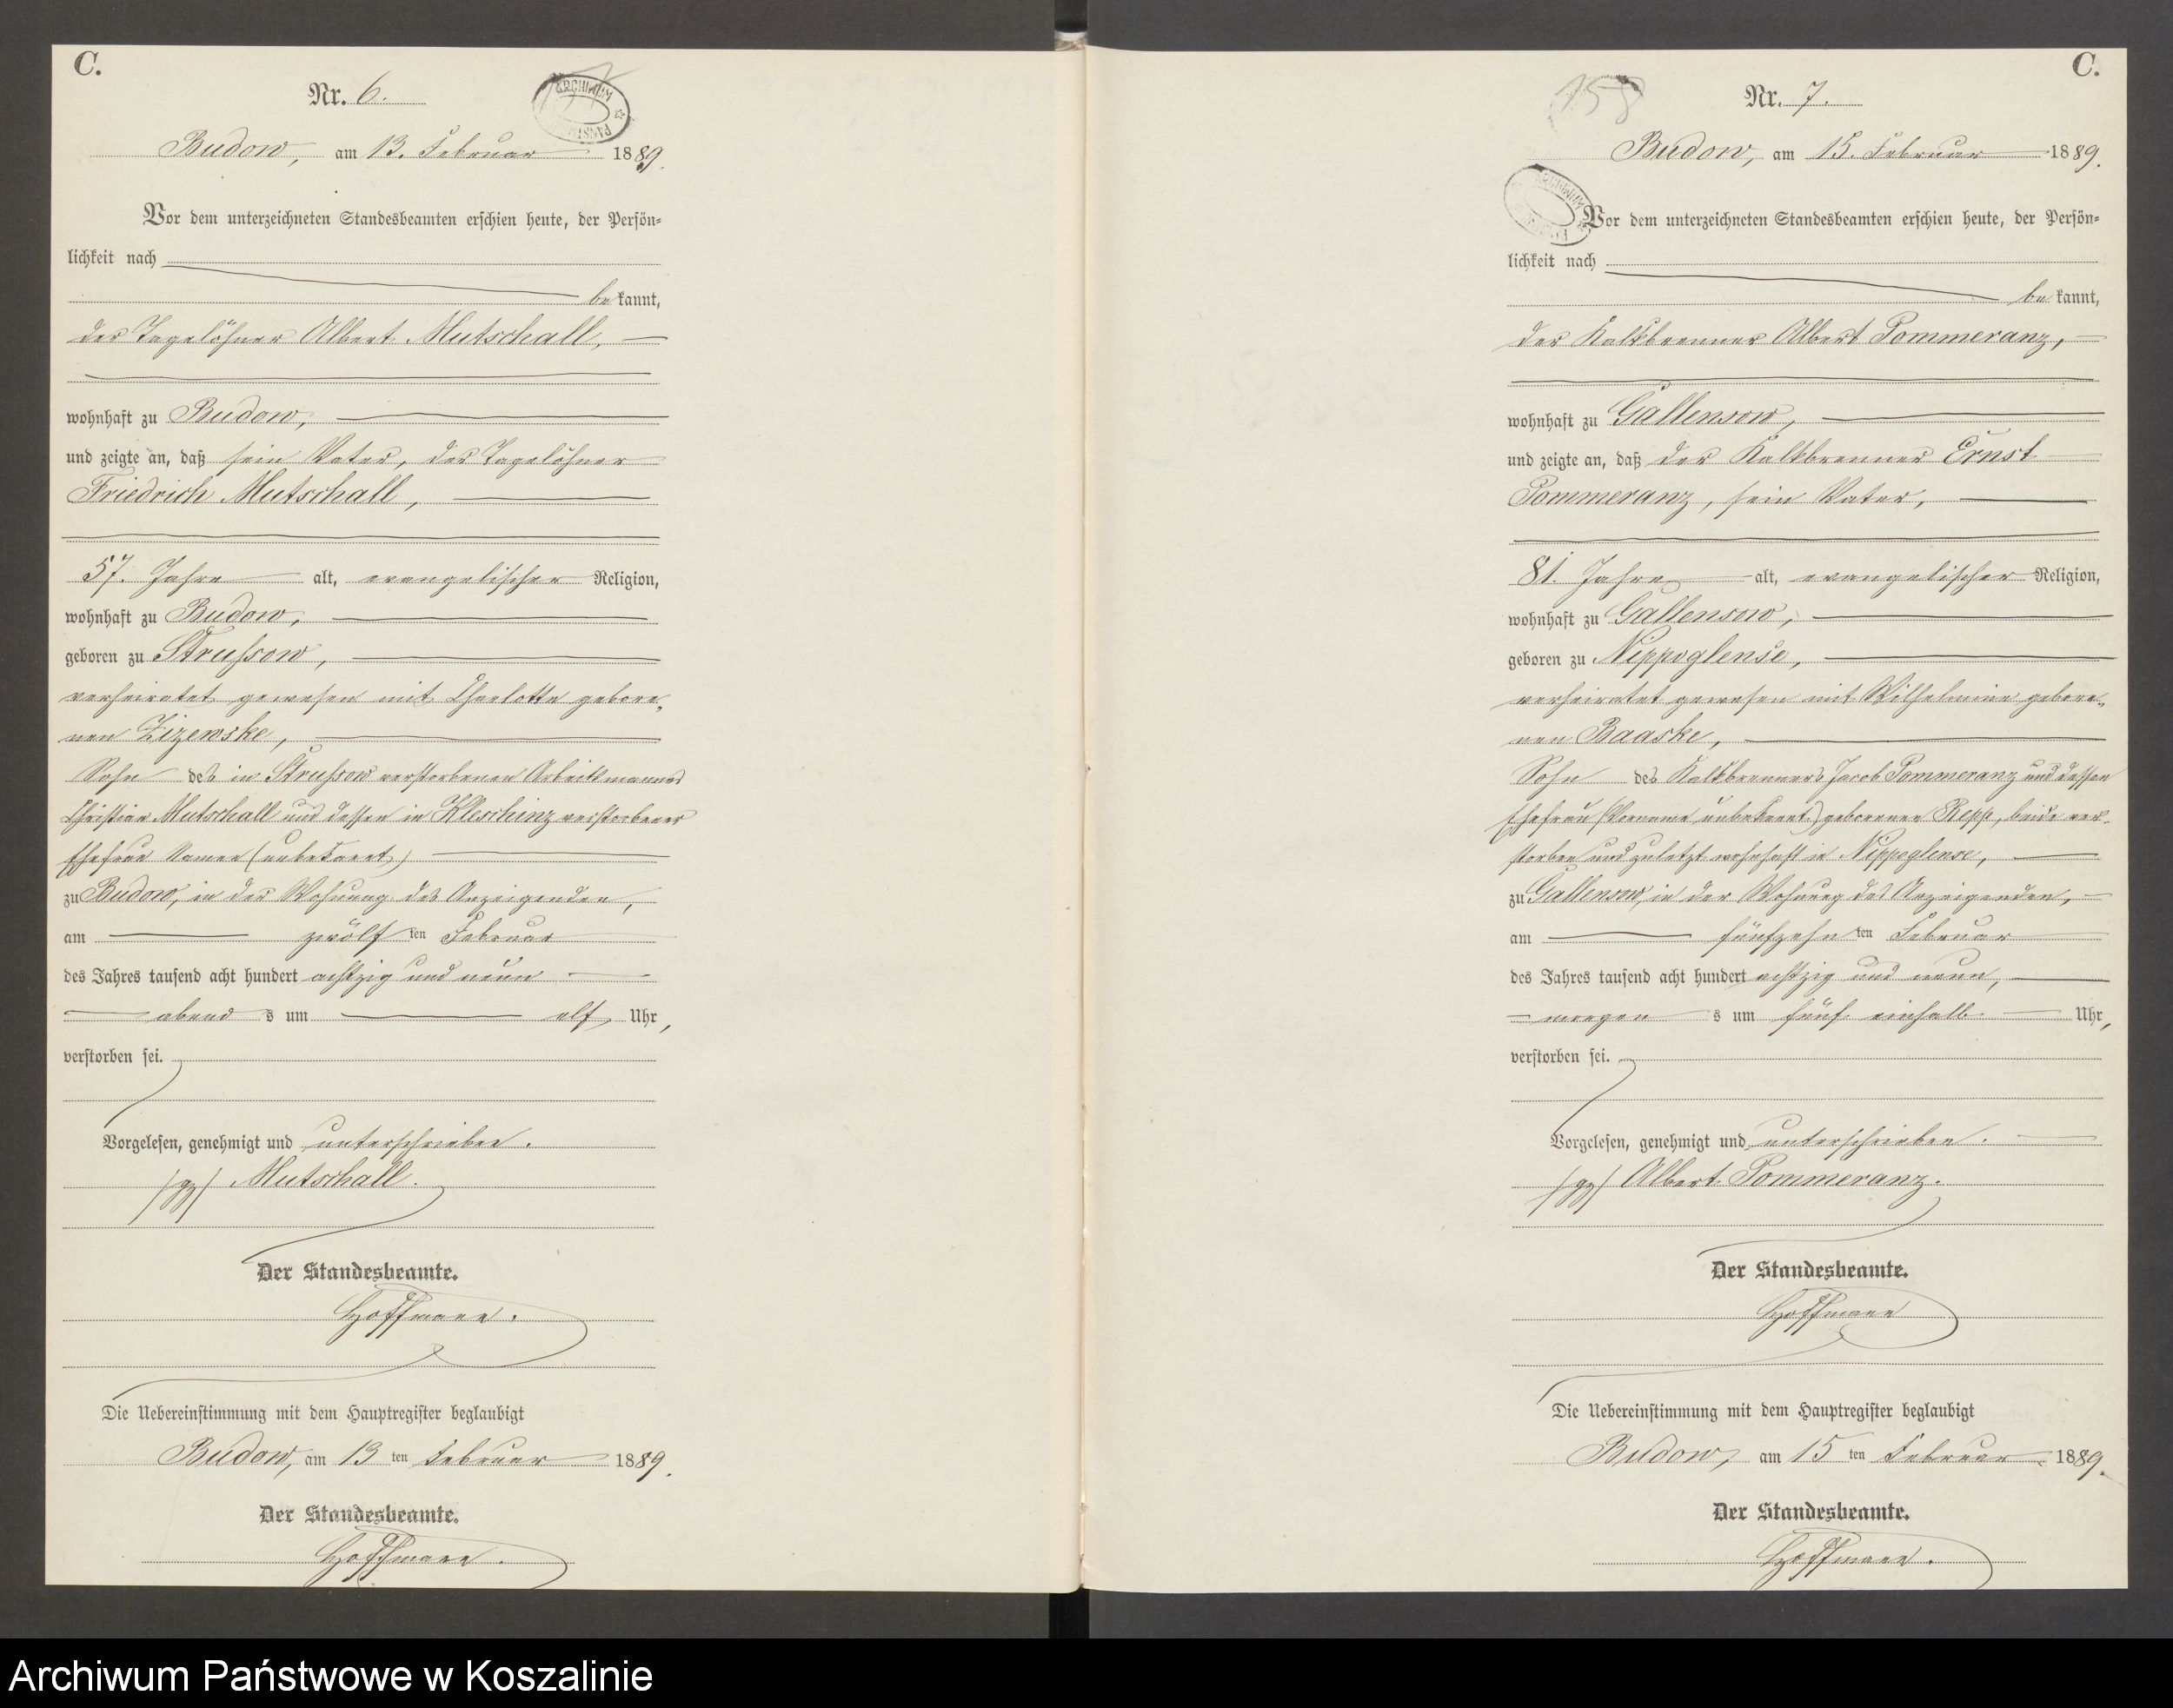 C.
Nr. 6.
ARCHIWUM
Budow, am 13. Februar 1889.
Vor dem unterzeichneten Standesbeamten erschien heute, der Persön=
lichkeit nach
be kannt,
der Tagelöhner Albert Mutschall,
wohnhaft zu Budow,
und zeigte an, daß sein Vater, der Tagelöhner
Friedrich Mutschall,
57. Jahre alt, evangelischer Religion,
wohnhaft zu Budow,
geboren zu Strussow,
verheiratet gewesen mit Charlotte gebore„
nen Zizewske,
Sohn des in Strussow verstorbenen Arbeitsmannes
Christian Mutschall und dessen in Kleschinz verstorbener
Ehefrau Namen (unbekannt)
zu Budow, in der Wohnung des Anzeigenden,
am zwölf ten Februar
des Jahres tausend acht hundert achtzig und neun
abend s um elf Uhr,
verstorben sei.
Vorgelesen, genehmigt und unterschrieben.
/gz/ Mutschall.
Der Standesbeamte.
Hoffmann.
Die Uebereinstimmung mit dem Hauptregister beglaubigt
Budow, am 13 ten Februar 1889.
Der Standesbeamte.
Hoffmann.
C.
158
Nr. 7.
Budow, am 15. Februar 1889.
ARCHIWUM
Vor dem unterzeichneten Standesbeamten erschien heute, der Persön=
lichkeit nach
be kannt,
der Kalkbrenner Albert Pommeranz,
wohnhaft zu Gallensow,
und zeigte an, daß der Kalkbrenner Ernst
Pommeranz, sein Vater,
81. Jahre alt, evangelischer Religion,
wohnhaft zu Gallensow,
geboren zu Nippoglense,
verheiratet gewesen mit Wilhelmine gebore„
nen Baaske,
Sohn des Kalkbrenners Jacob Pommeranz und dessen
Ehefrau (Vorname unbekannt) geborenen Repp, beide ver„
storben und zuletzt wohnhaft in Nippoglense,
zu Gallensow, in der Wohnung des Anzeigenden,
am fünfzehn ten Februar
des Jahres tausend acht hundert achtzig und neun,
morgen s um fünf einhalb Uhr,
verstorben sei.
Vorgelesen, genehmigt und unterschrieben.
/gz/ Albert Pommeranz.
Der Standesbeamte.
Hoffmann
Die Uebereinstimmung mit dem Hauptregister beglaubigt
Budow, am 15 ten Februar 1889.
Der Standesbeamte.
Hoffmann.
Archiwum Państwowe w Koszalinie